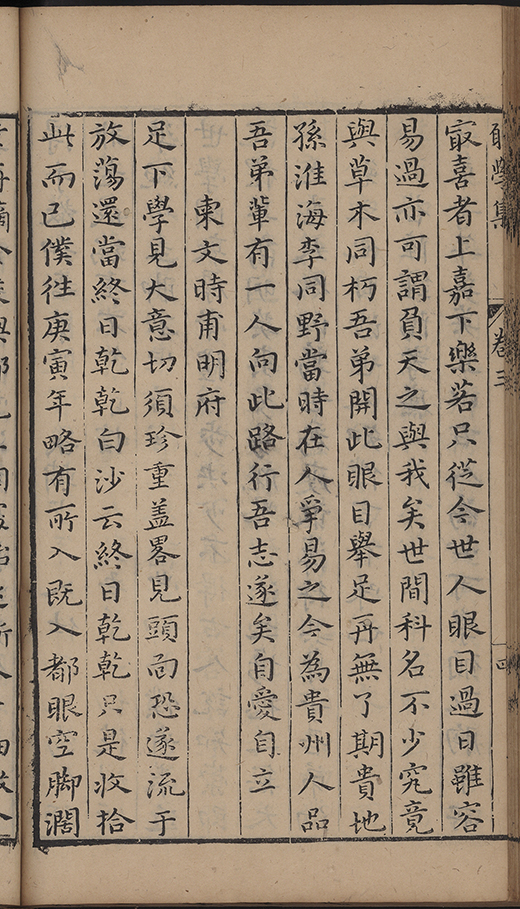 卷三
㝡喜者上嘉下樂若只從今世人眼目過日雖容
易過亦可謂負天之與我矣世間科名不少究竟
與草木同朽吾弟開此眼目舉足再無了期貴地
孫淮海李同野當時在人爭易之今為貴州人品
吾弟輩有一人向此路行吾志遂矣自愛自立
柬文時甫明府
足下學見大意切須珍重盖畧見頭面恐遂流于
放蕩還當終日乾乾白沙云終日乾乾只是收拾
此而已僕往庚寅年略有所入既入都眼空脚濶